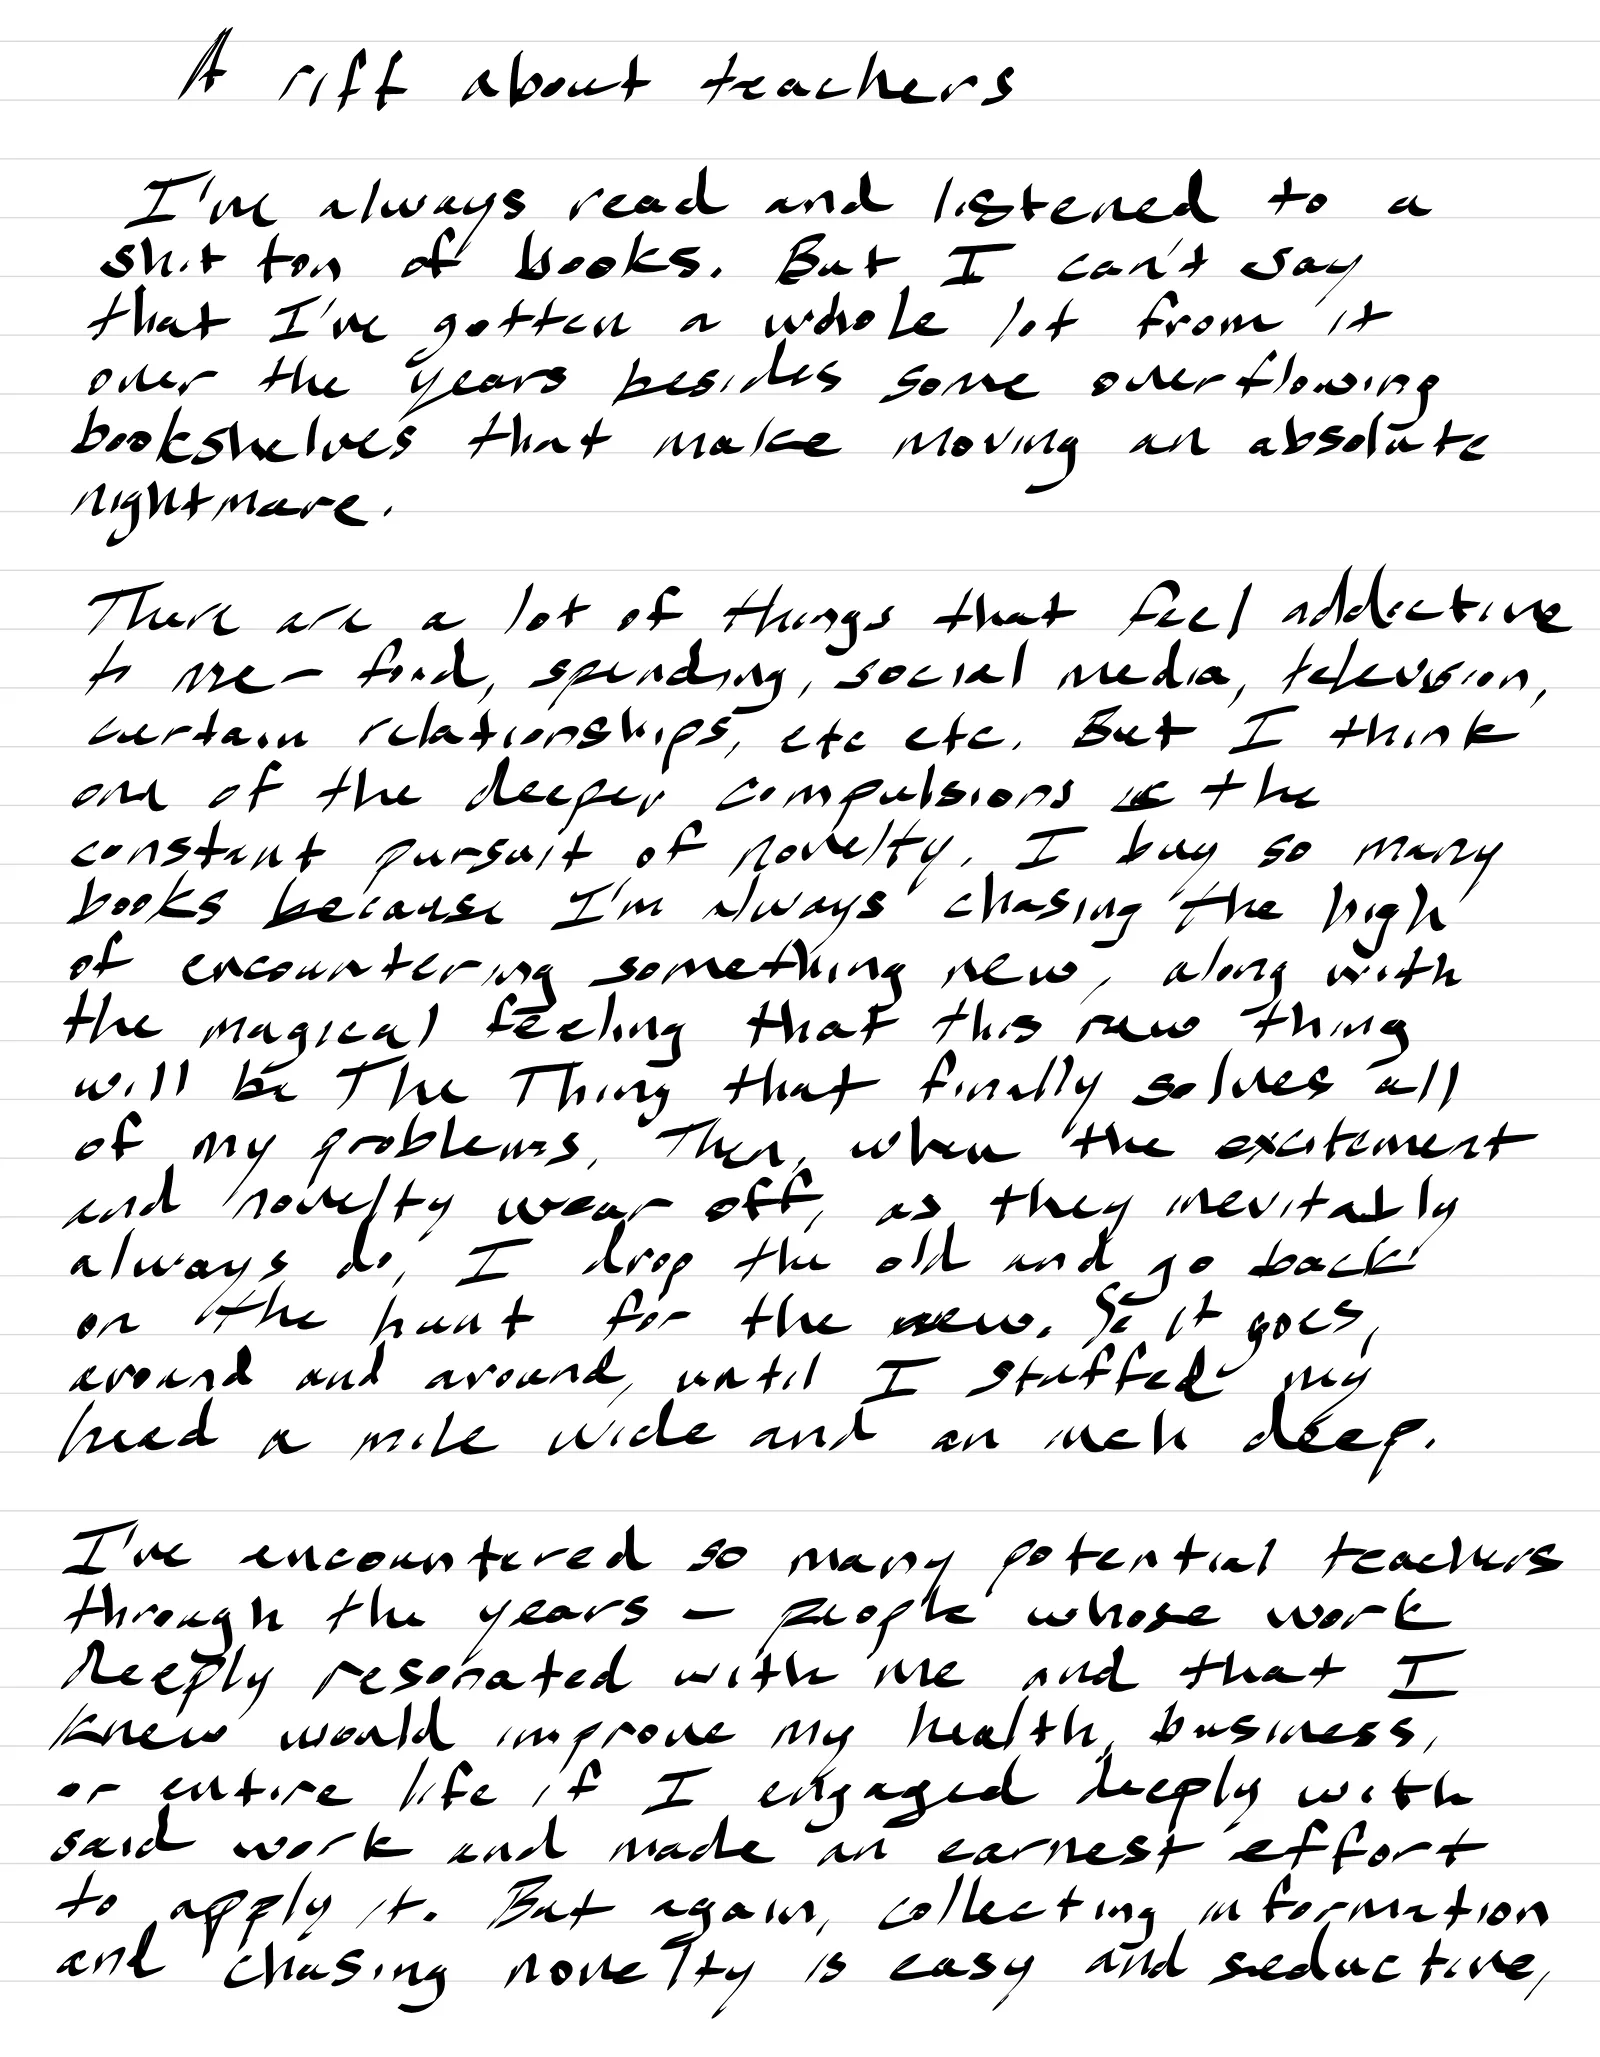 A riff about teachers
I've always read and listened to a
shit ton of books. But I can't say
that I've gotten a whole lot from it
over the years besides some overflowing
bookshelves that make moving an absolute
nightmare.
There are a lot of things that feel addictive
to me - food, spending, social media, television,
certain relationships, etc etc. But I think
one of the deeper compulsions is the
constant pursuit of novelty. I buy so many
books because I'm always chasing the high
of encountering something new, along with
the magical feeling that this new thing
will be The Thing that finally solves all
of my problems. Then, when the excitement
and novelty wear off, as they inevitably
always do, I drop the old and go back
on the hunt for the new. So it goes,
around and around, until I stuffed my
head a mile wide and an inch deep.
I've encountered so many potential teachers
through the years - people whose work
deeply resonated with me and that I
knew would improve my health, business,
or entire life if I engaged deeply with
said work and made an earnest effort
to apply it. But again, collecting information
and chasing novelty is easy and seductive,